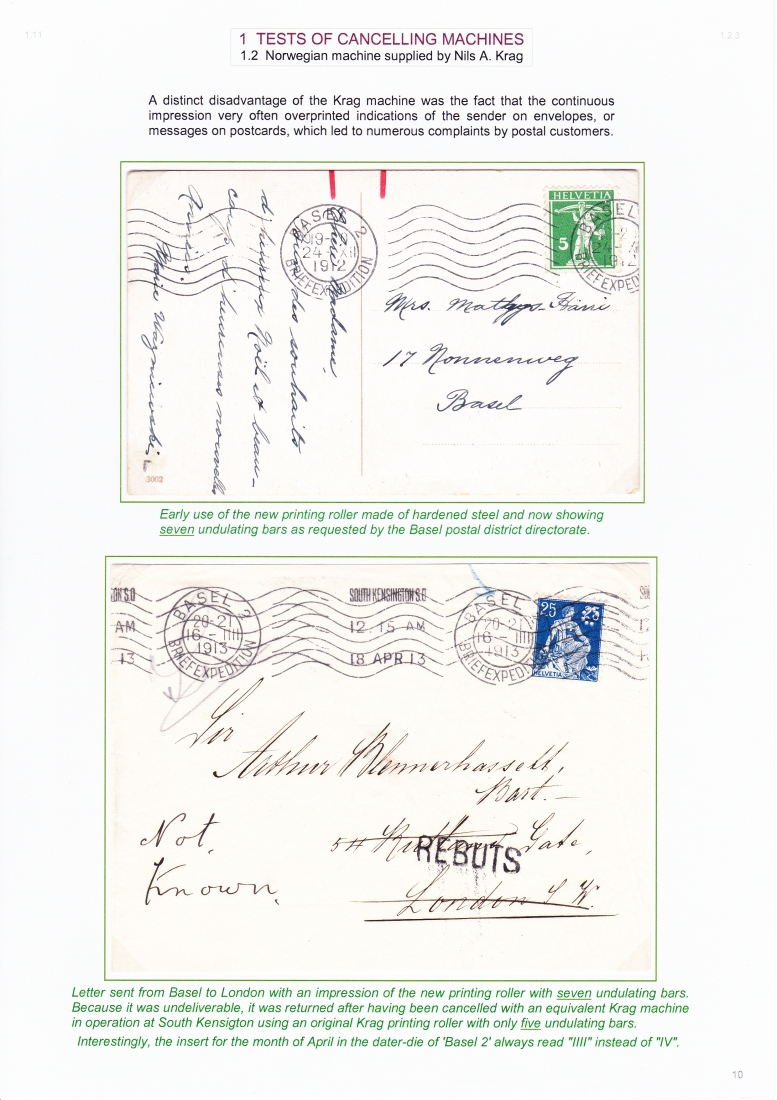 1.11
1.2.3
1 TESTS OF CANCELLING MACHINES
1.2 Norwegian machine supplied by Nils A. Krag
A distinct disadvantage of the Krag machine was the fact that the continuous
impression very often overprinted indications of the sender on envelopes, or
messages on postcards, which led to numerous complaints by postal customers.
HELVETIA
5
BASEL 2
24 XII
1912
BRIEFEXPEDITION
BASEL
1912
BRIEFEXPED
Chère Madame.
des souhaits
d'heureux Noël et beau-
coup d'heureuses nouvelles
Mrs. Matthys-Härri
17 Nonnenweg
Basel
3002
Early use of the new printing roller made of hardened steel and now showing
seven undulating bars as requested by the Basel postal district directorate.
ON S.O
AM
13
BASEL 2
20-21
16 - IIII
1913
BRIEFEXPEDITION
SOUTH KENSINGTON S.O
12.15 AM
18 APR 13
BASEL
20-21
16 - IIII
1913
BRIEFEXPEDITION
25
HELVETIA
Sir
Arthur Blennerhassett,
Bart.
Not
54 Rutland Gate,
REBUTS
Known
London S.W.
Letter sent from Basel to London with an impression of the new printing roller with seven undulating bars.
Because it was undeliverable, it was returned after having been cancelled with an equivalent Krag machine
in operation at South Kensigton using an original Krag printing roller with only five undulating bars.
Interestingly, the insert for the month of April in the dater-die of 'Basel 2' always read "IIII" instead of "IV".
10